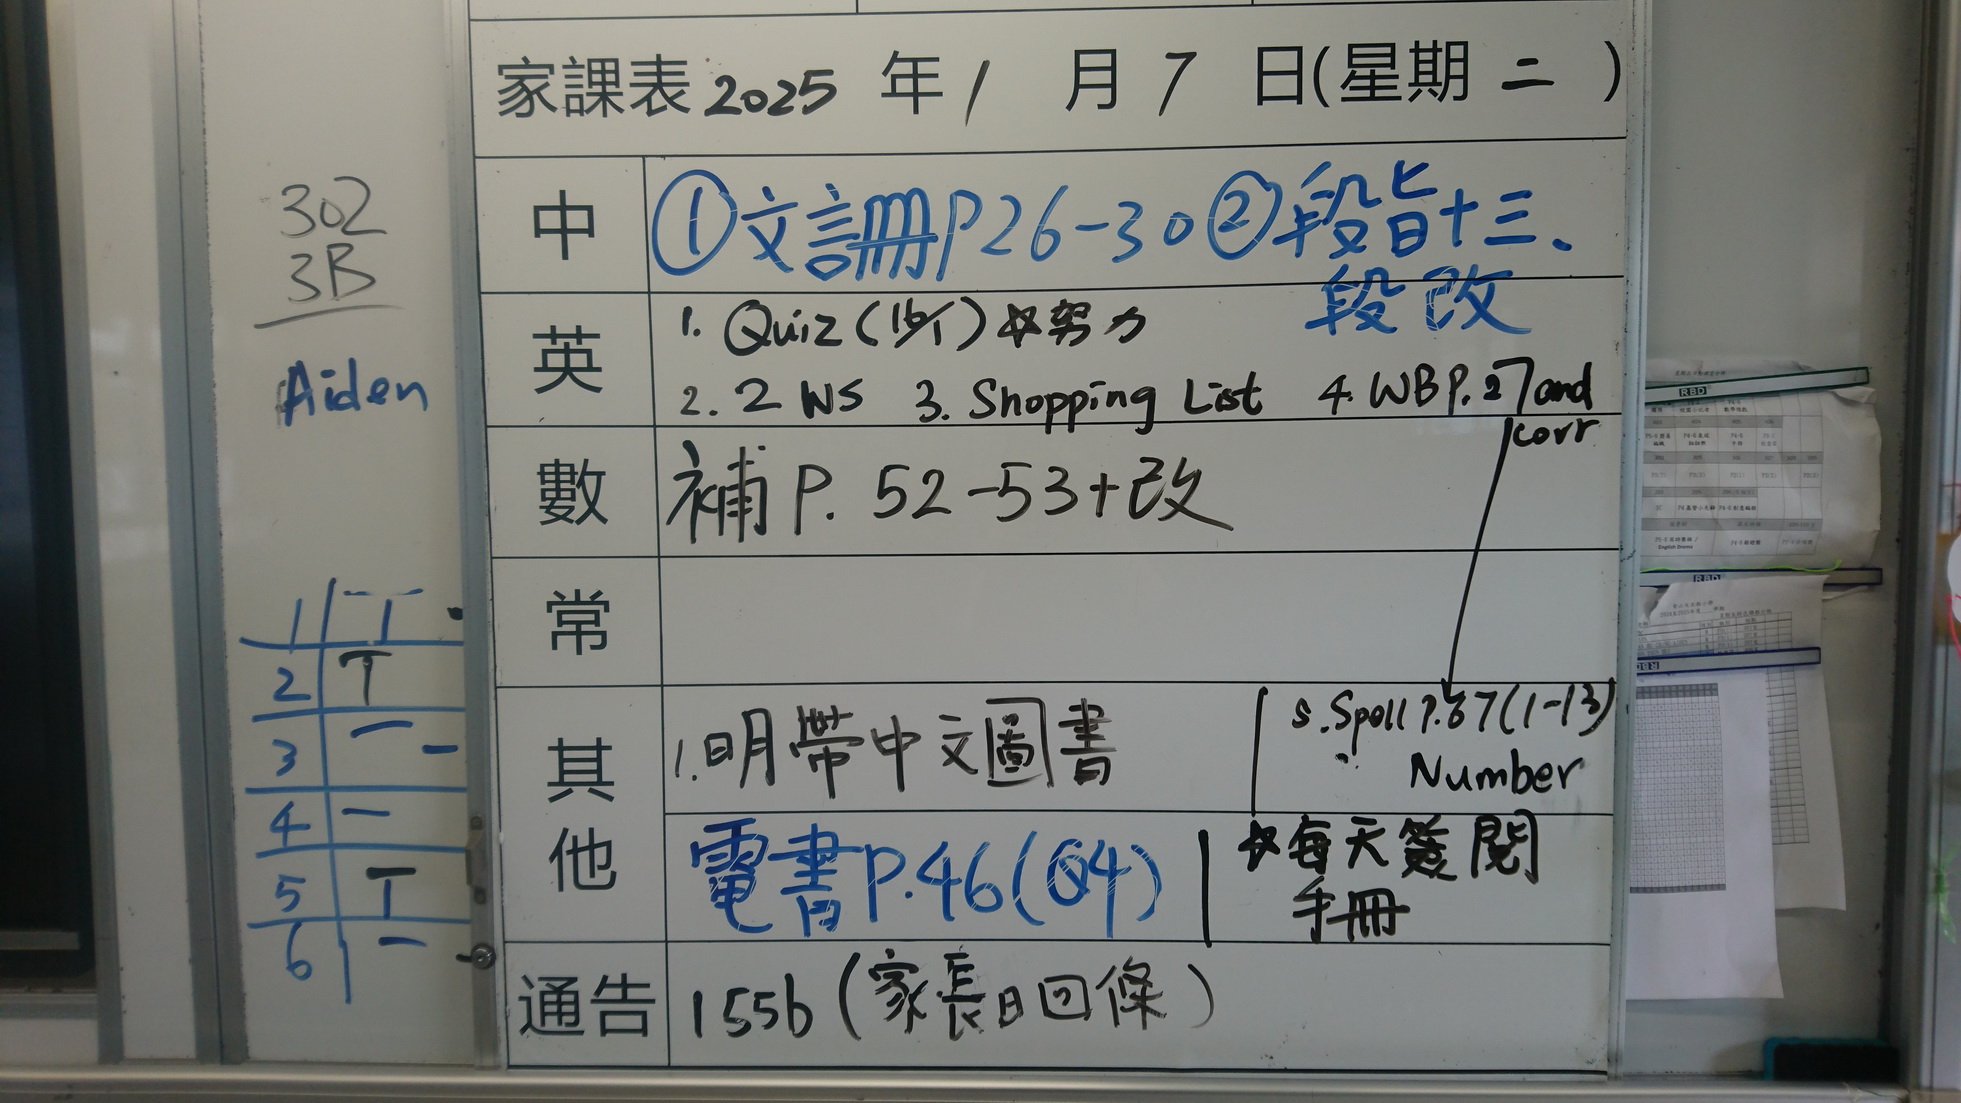 家課表 2025 年 1 月 7 日(星期 二 )
302
3B
Aiden
中
①文言冊P26-30 ②段旨十三、
段改
英
1. Quiz (16/1) ☆努力
2. 2 WS 3. Shopping List 4. WB P. 27 and
corr
數
補 P. 52-53+改
常
其他
1.明帶中文圖書
5.Spell P.67(1-13)
Number
電書P.46(Q4)
☆每天簽閱
手冊
通告
155b (家長日回條)
1 T
2 T
3
4
5 T
6
RBD
RBD
RBD
English Drama